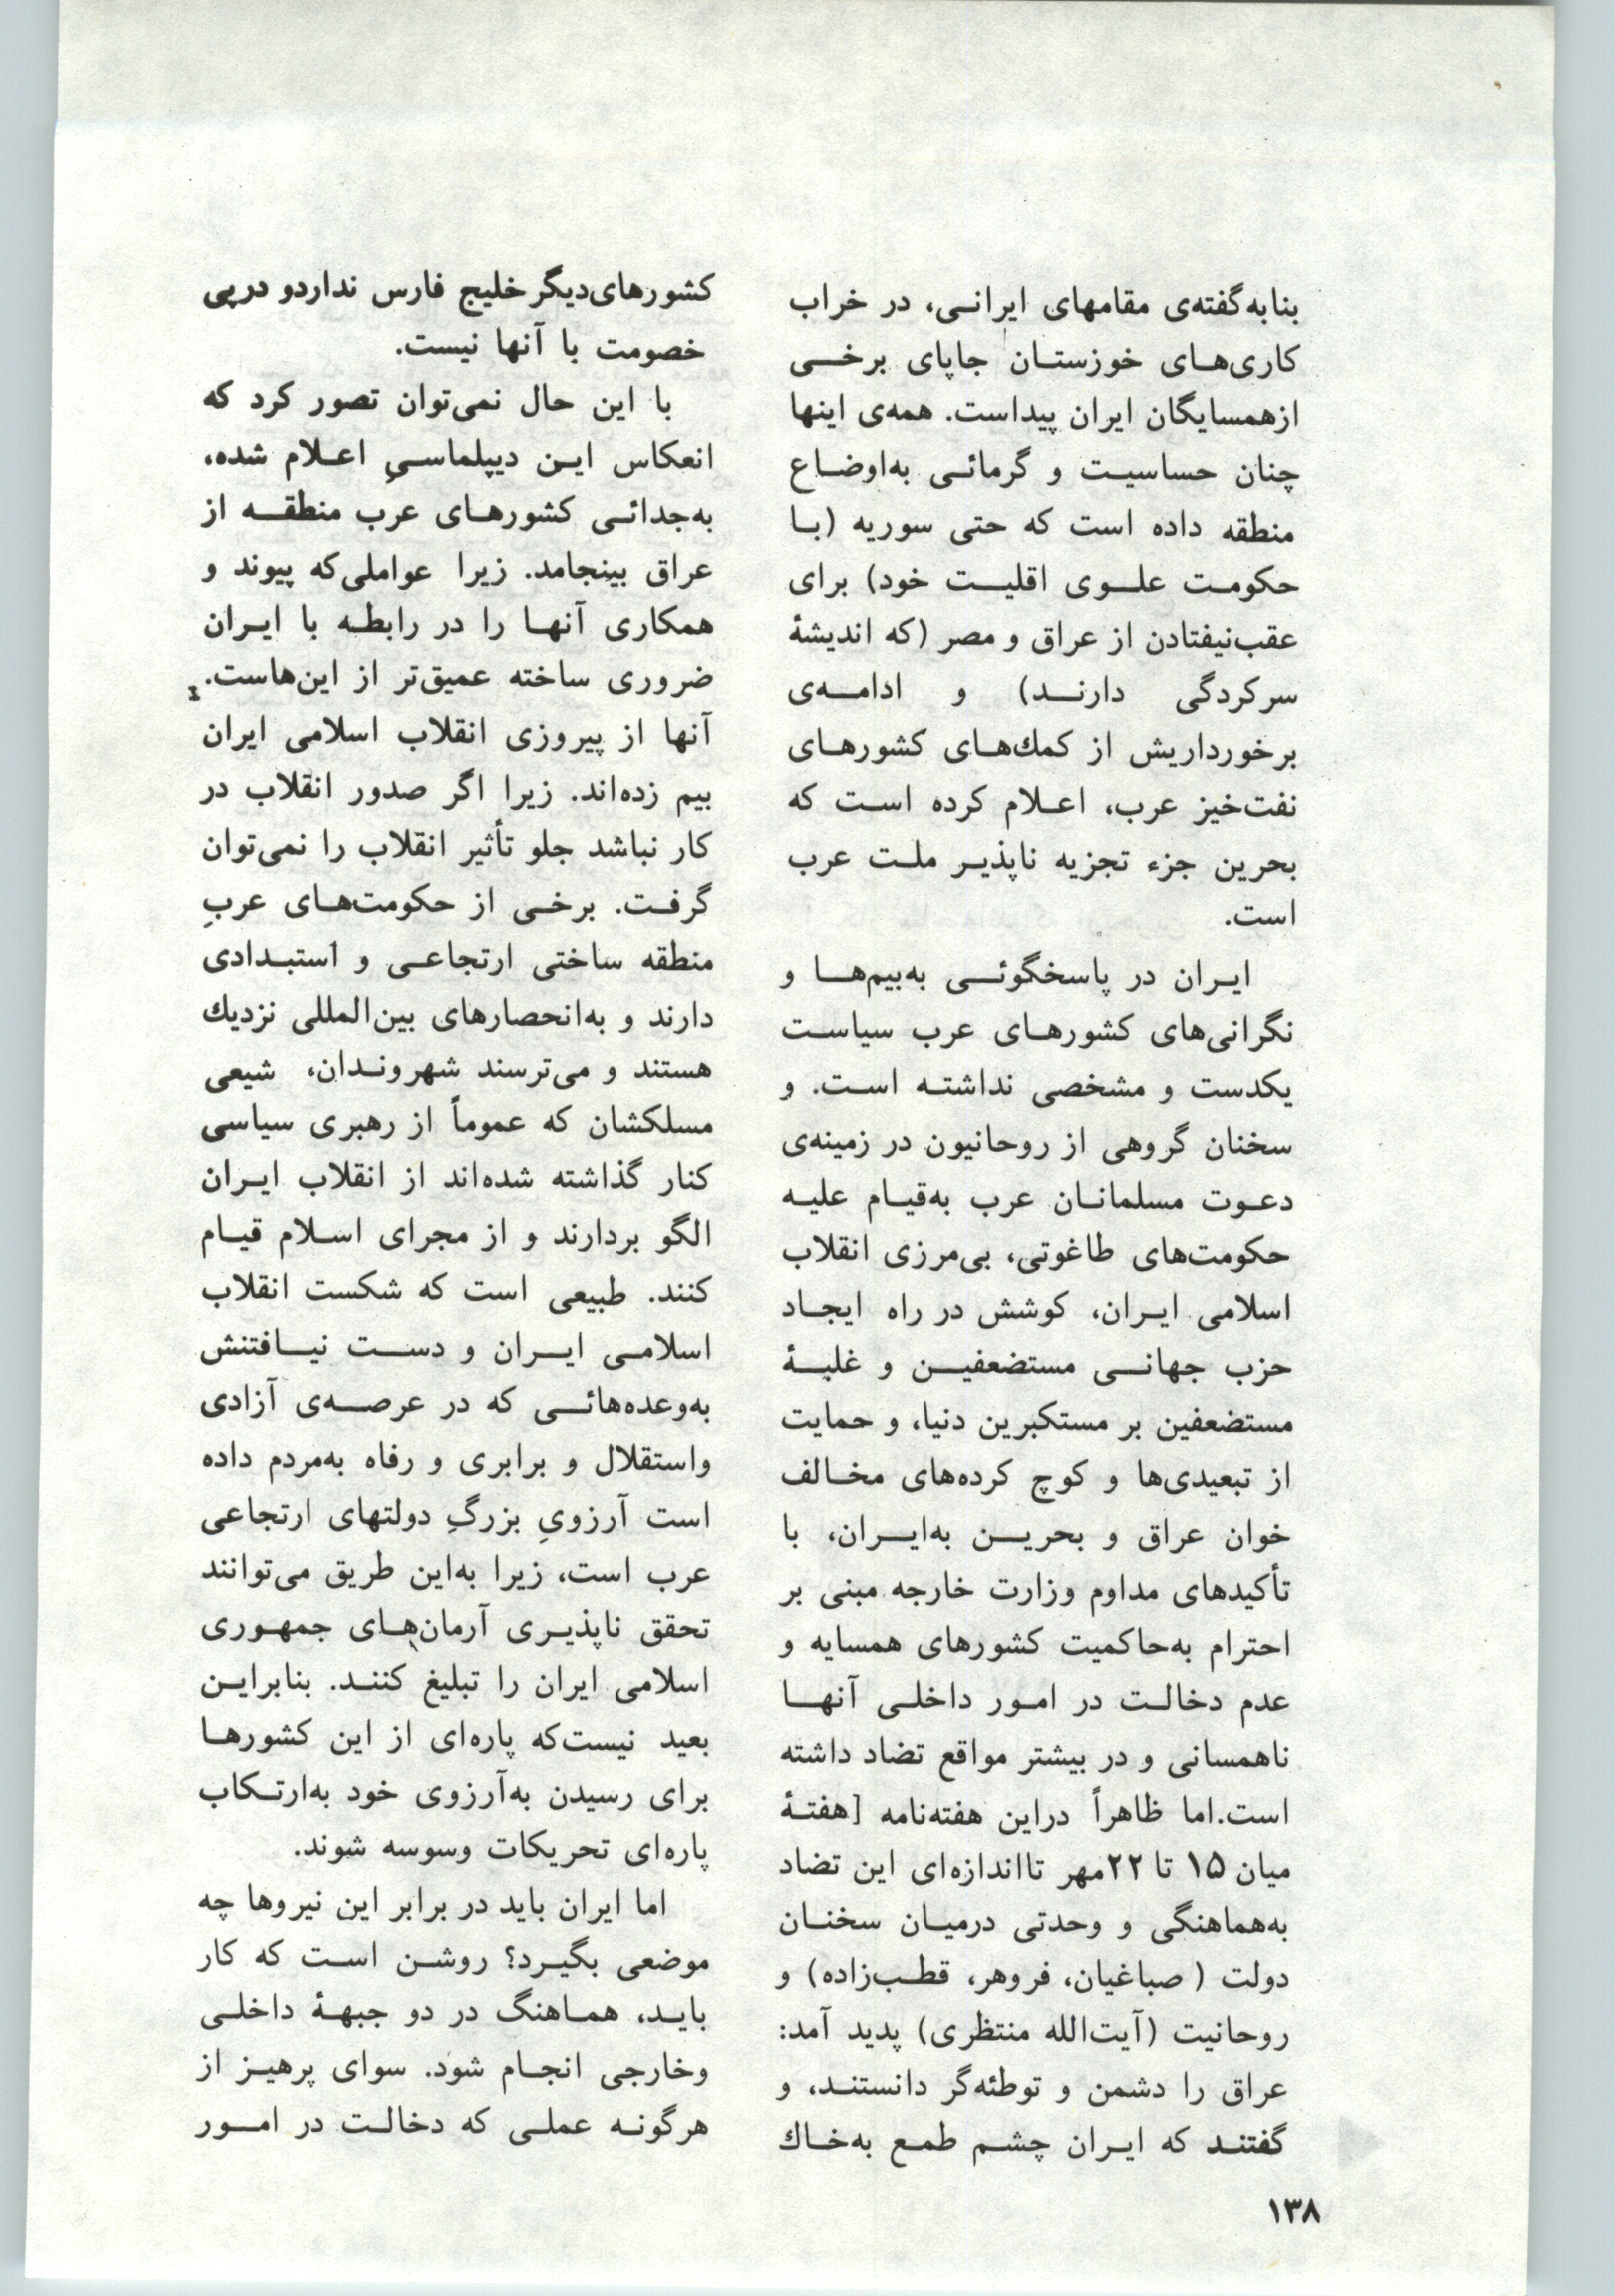 بنابه‌گفته‌ی مقامهای ایرانی، در خراب
کاری‌های خوزستان جاپای برخی
ازهمسایگان ایران پیداست. همه‌ی اینها
چنان حساسیت و گرمائی به‌اوضاع
منطقه داده است که حتی سوریه (با
حکومت علوی اقلیت خود) برای
عقب‌نیفتادن از عراق و مصر (که اندیشهٔ
سرکردگی دارند) و ادامه‌ی
برخورداریش از کمك‌های کشورهای
نفت‌خیز عرب، اعلام کرده است که
بحرین جزء تجزیه ناپذیر ملت عرب
است.
ایران در پاسخگوئی به‌بیم‌ها و
نگرانی‌های کشورهای عرب سیاست
یکدست و مشخصی نداشته است. و
سخنان گروهی از روحانیون در زمینه‌ی
دعوت مسلمانان عرب به‌قیام علیه
حکومت‌های طاغوتی، بی‌مرزی انقلاب
اسلامی ایران، کوشش در راه ایجاد
حزب جهانی مستضعفین و غلبهٔ
مستضعفین بر مستکبرین دنیا، و حمایت
از تبعیدی‌ها و کوچ کرده‌های مخالف
خوان عراق و بحرین به‌ایران، با
تأکیدهای مداوم وزارت خارجه مبنی بر
احترام به‌حاکمیت کشورهای همسایه و
عدم دخالت در امور داخلی آنها
ناهمسانی و در بیشتر مواقع تضاد داشته
است.اما ظاهراً دراین هفته‌نامه [هفتهٔ
میان ۱۵ تا ۲۲مهر تااندازه‌ای این تضاد
به‌هماهنگی و وحدتی درمیان سخنان
دولت ( صباغیان، فروهر، قطب‌زاده) و
روحانیت (آیت‌الله منتظری) پدید آمد:
عراق را دشمن و توطئه‌گر دانستند، و
گفتند که ایران چشم طمع به‌خاك
کشورهای‌دیگر خلیج فارس نداردو درپی
خصومت با آنها نیست.
با این حال نمی‌توان تصور کرد که
انعکاس این دیپلماسیِ اعلام شده،
به‌جدائی کشورهای عرب منطقه از
عراق بینجامد. زیرا عواملی‌که پیوند و
همکاری آنها را در رابطه با ایران
ضروری ساخته عمیق‌تر از این‌هاست.
آنها از پیروزی انقلاب اسلامی ایران
بیم زده‌اند. زیرا اگر صدور انقلاب در
کار نباشد جلو تأثیر انقلاب را نمی‌توان
گرفت. برخی از حکومت‌های عربِ
منطقه ساختی ارتجاعی و استبدادی
دارند و به‌انحصارهای بین‌المللی نزدیك
هستند و می‌ترسند شهروندان، شیعی
مسلکشان که عموماً از رهبری سیاسی
کنار گذاشته شده‌اند از انقلاب ایران
الگو بردارند و از مجرای اسلام قیام
کنند. طبیعی است که شکست انقلاب
اسلامی ایران و دست نیافتنش
به‌وعده‌هائی که در عرصه‌ی آزادی
واستقلال و برابری و رفاه به‌مردم داده
است آرزویِ بزرگِ دولتهای ارتجاعی
عرب است، زیرا به‌این طریق می‌توانند
تحقق ناپذیری آرمان‌های جمهوری
اسلامی ایران را تبلیغ کنند. بنابراین
بعید نیست‌که پاره‌ای از این کشورها
برای رسیدن به‌آرزوی خود به‌ارتکاب
پاره‌ای تحریکات وسوسه شوند.
اما ایران باید در برابر این نیروها چه
موضعی بگیرد؟ روشن است که کار
باید، هماهنگ در دو جبههٔ داخلی
وخارجی انجام شود. سوای پرهیز از
هرگونه عملی که دخالت در امور
۱۳۸